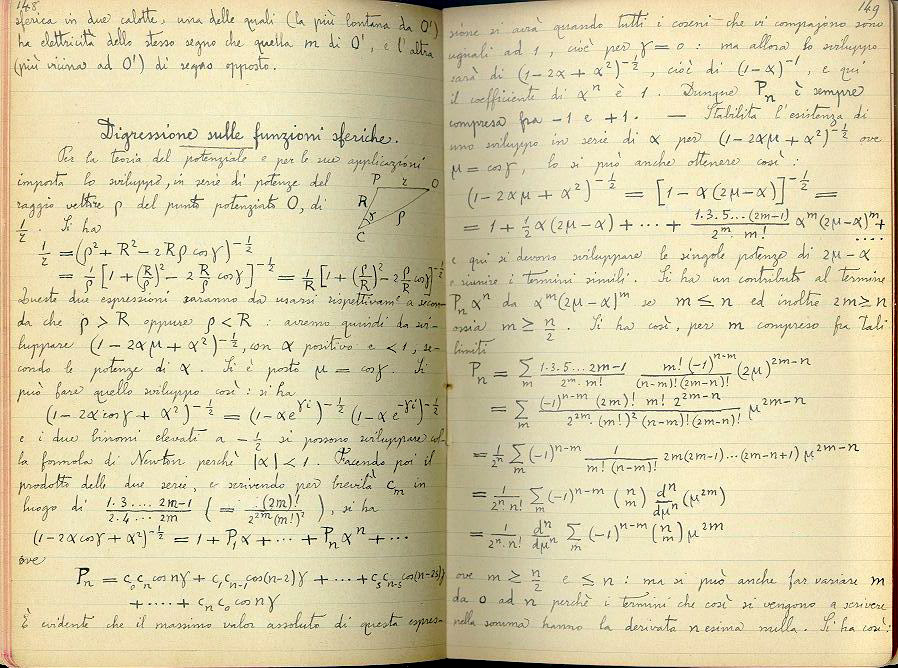 148
sferica in due calotte, una delle quali (la più lontana da O')
ha elettricità dello stesso segno che quella m di O', e l'altra
(più vicina ad O') di segno opposto.
Digressione sulle funzioni sferiche.
Per la teoria del potenziale e per le sue applicazioni
importa lo sviluppo, in serie di potenze del
raggio vettore ρ del punto potenziato O, di
1/r. Si ha
P r O
R γ ρ
C
1/r = (ρ² + R² − 2Rρ cosγ)^(−1/2)
= 1/ρ [1 + (R/ρ)² − 2 R/ρ cosγ]^(−1/2) = 1/R [1 + (ρ/R)² − 2 ρ/R cosγ]^(−1/2)
Queste due espressioni saranno da usarsi rispettivamᵉ a secon-
da che ρ > R oppure ρ < R : avremo quindi da svi-
luppare (1 − 2αμ + α²)^(−1/2), con α positivo e < 1, se-
condo le potenze di α. Si è posto μ = cosγ. Si
può fare quello sviluppo così : si ha
(1 − 2α cosγ + α²)^(−1/2) = (1 − αe^(γi))^(−1/2) (1 − αe^(−γi))^(−1/2)
e i due binomi elevati a −1/2 si possono sviluppare col-
la formola di Newton perchè |α| < 1. Facendo poi il
prodotto delle due serie, e scrivendo per brevità cₘ in
luogo di 1.3....2m−1 / 2.4...2m ( = (2m)! / 2^(2m)(m!)² ), si ha
(1 − 2α cosγ + α²)^(−1/2) = 1 + P₁α + ··· + Pₙαⁿ + ···
ove
Pₙ = c₀cₙ cos nγ + c₁cₙ₋₁ cos(n−2)γ + ··· + cₛcₙ₋ₛ cos(n−2s)γ
+ ···· + cₙc₀ cos nγ
È evidente che il massimo valor assoluto di questa espres-
149
sione si avrà quando tutti i coseni che vi compajono sono
uguali ad 1, cioè per γ = 0 : ma allora lo sviluppo
sarà di (1 − 2α + α²)^(−1/2), cioè di (1 − α)^(−1), e qui
il coefficiente di αⁿ è 1. Dunque Pₙ è sempre
compresa fra −1 e +1. — Stabilita l'esistenza di
uno sviluppo in serie di α per (1 − 2αμ + α²)^(−1/2) ove
μ = cosγ, lo si può anche ottenere così :
(1 − 2αμ + α²)^(−1/2) = [1 − α(2μ − α)]^(−1/2) =
= 1 + 1/2 α(2μ − α) + ··· + 1.3.5...(2m−1) / 2^m. m! α^m (2μ − α)^m + ....
e qui si devono sviluppare le singole potenze di 2μ − α
e riunire i termini simili. Si ha un contributo al termine
Pₙαⁿ da α^m(2μ − α)^m se m ≤ n ed inoltre 2m ≥ n
ossia m ≥ n/2. Si ha così, per m compreso fra tali
limiti
Pₙ = ∑ₘ 1.3.5...2m−1 / 2^m. m! m!(−1)^(n−m) / (n−m)!(2m−n)! (2μ)^(2m−n)
= ∑ₘ (−1)^(n−m) (2m)! m! 2^(2m−n) / 2^(2m) (m!)² (n−m)! (2m−n)! μ^(2m−n)
= 1/2ⁿ ∑ₘ (−1)^(n−m) 1 / m!(n−m)! 2m(2m−1)...(2m−n+1) μ^(2m−n)
= 1 / 2ⁿ. n! ∑ₘ (−1)^(n−m) (n m) dⁿ/dμⁿ (μ^(2m))
= 1 / 2ⁿ. n! dⁿ/dμⁿ ∑ₘ (−1)^(n−m) (n m) μ^(2m)
ove m ≥ n/2 e ≤ n : ma si può anche far variare m
da 0 ad n perchè i termini che così si vengono a scrivere
nella somma hanno la derivata nesima nulla. Si ha così: